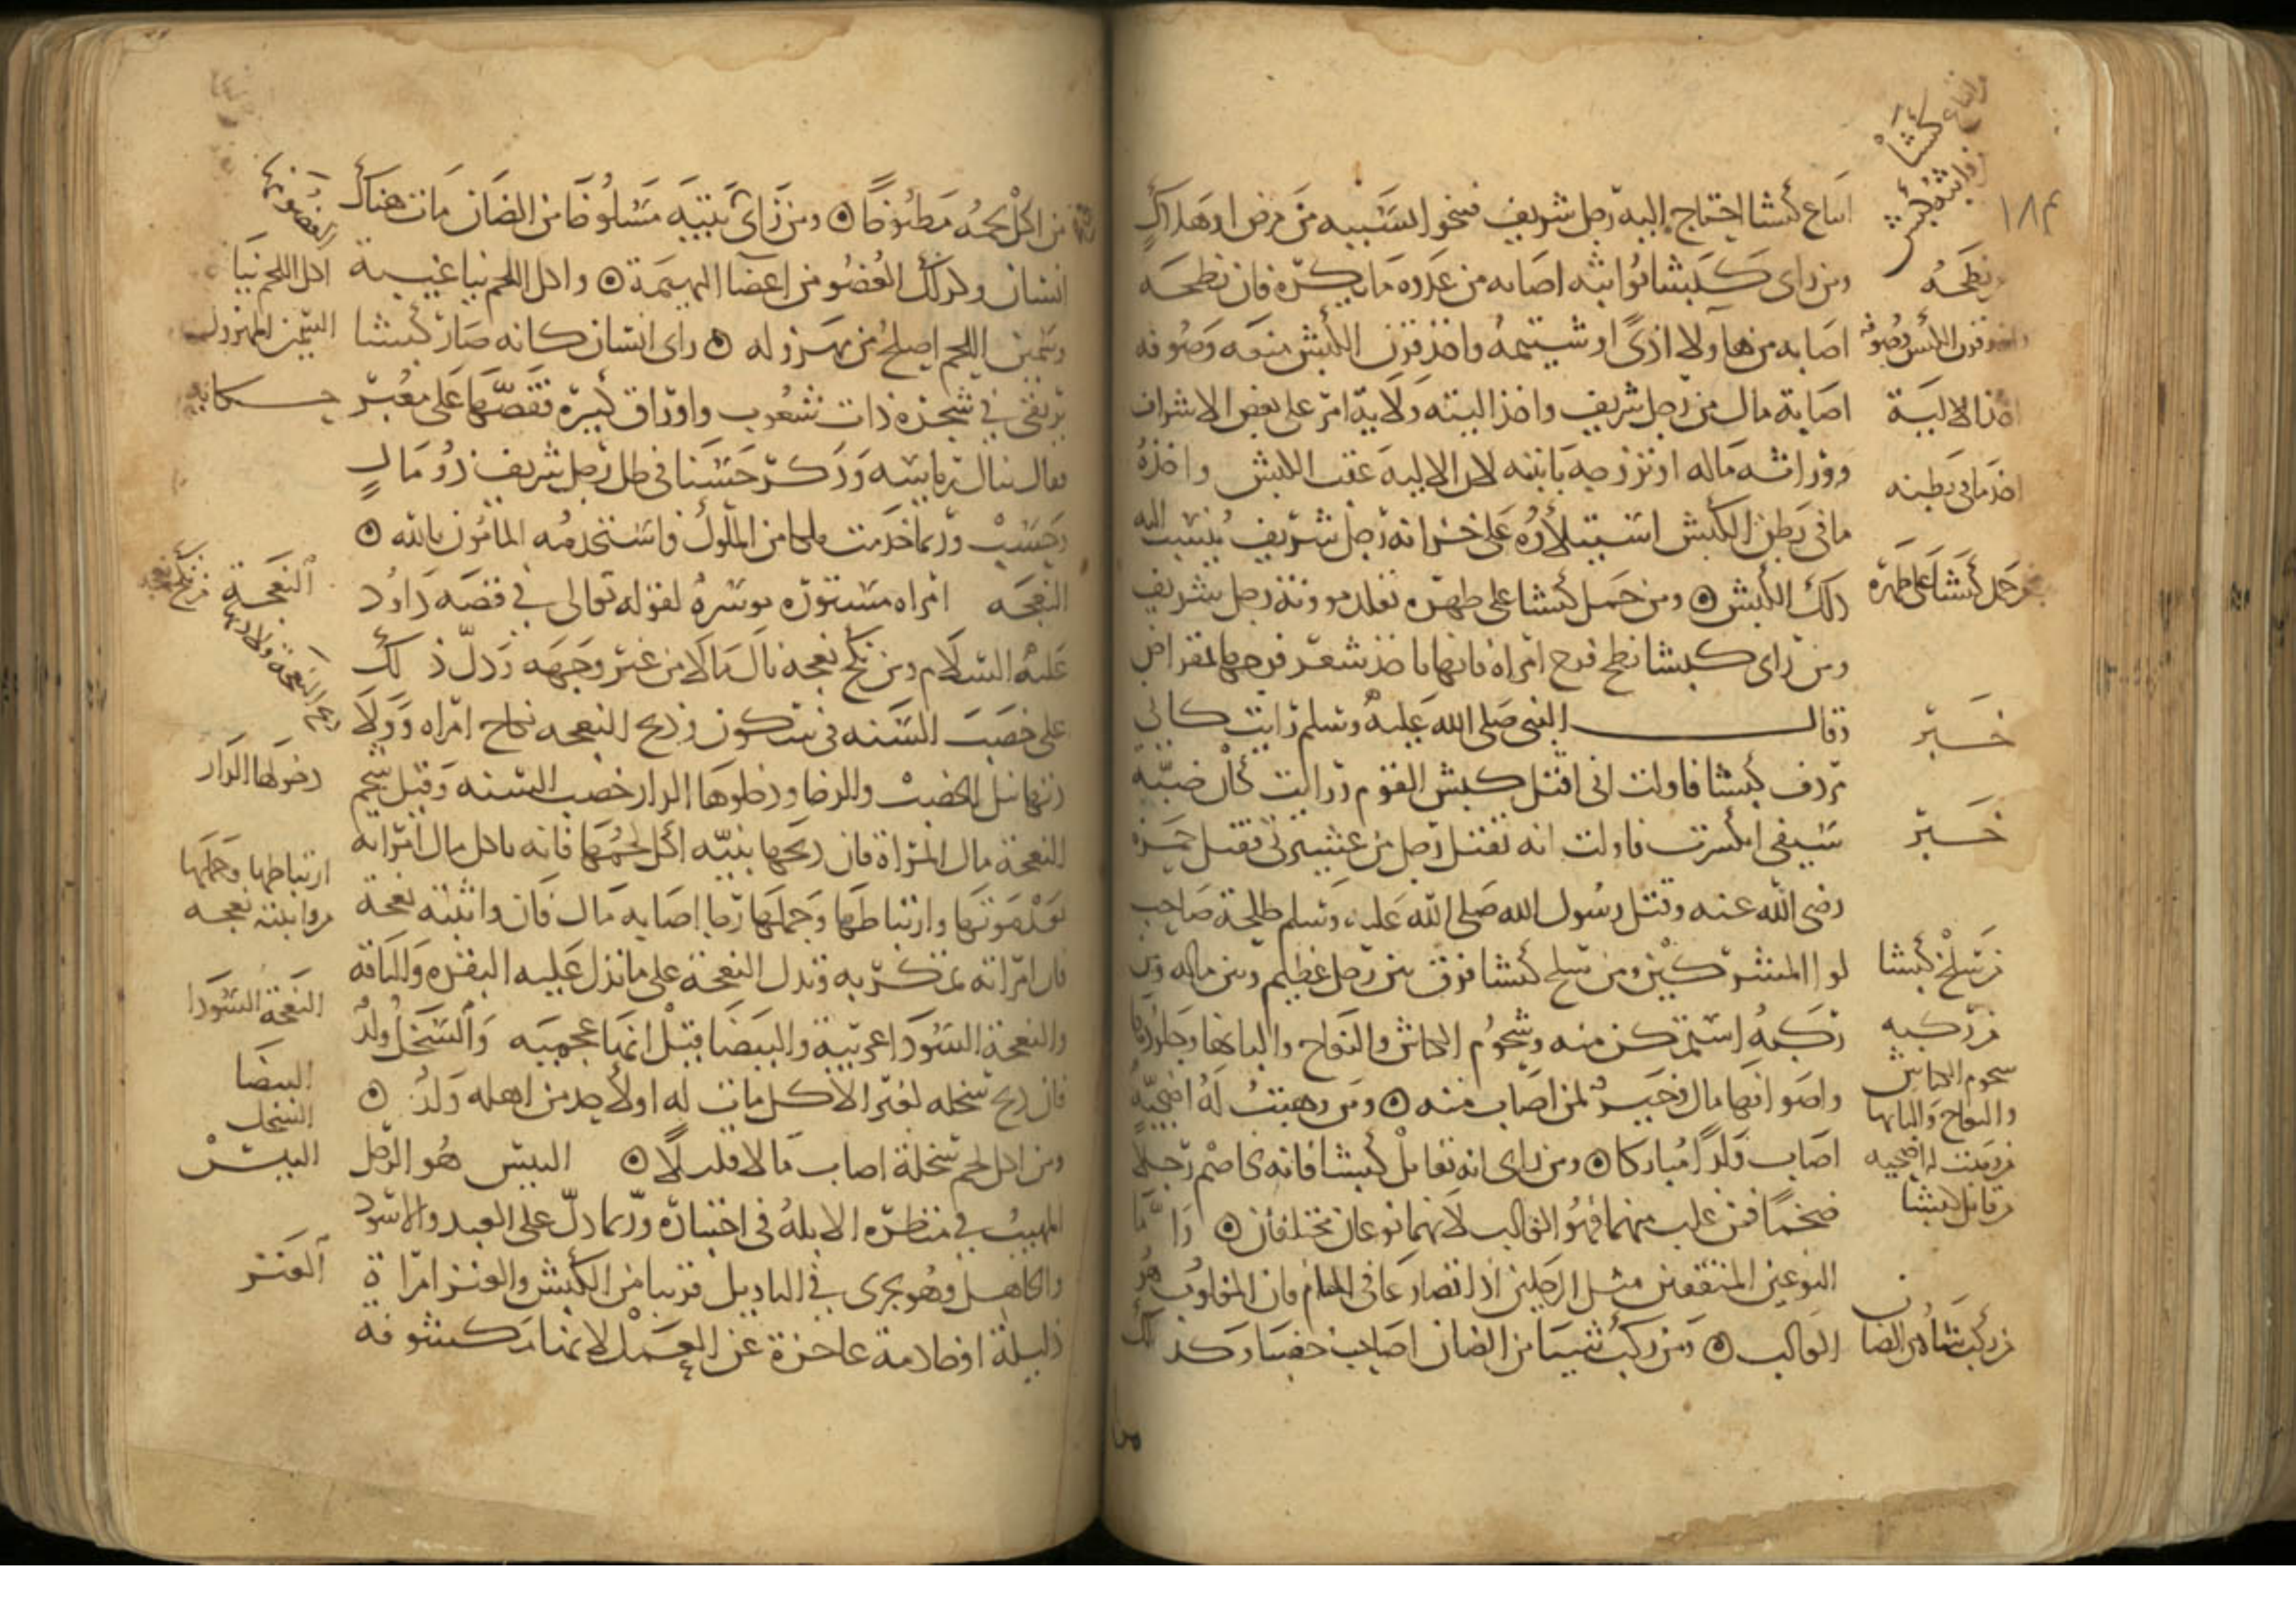 ١٨٣
ابتاع كبشا احتاج اليه رجل شريف فينجو بسببه من مرض او هلاك
ومن راى كبشا يواثبه اصابه من عدوه ما يكره فان نطحه
اصابه من هاولا اذى او شتيمه واخذ قرن الكبش منعه وصوفه
اصابة مال من رجل شريف واخذ اليته ولاية امر على بعض الاشراف
ووراثه ماله او تزوجه بابنته لان الالية عقب الكبش واخذه
ما في بطن الكبش استيلاؤه على خزانه رجل شريف ينسب اليه
ذلك الكبش ۞ ومن حمل كبشا على ظهره تقلد موونة رجل شريف
ومن راى كبشا نطح فرج امراه فانها تاخذ شعر فرجها بمقراض
وقال النبي صلى الله عليه وسلم رايت كاني
مردف كبشا فاولت اني اقتل كبش القوم ورايت كان ضبة
سيفي انكسرت فاولت انه يقتل رجل من عشيرتي فقتل حمزه
رضي الله عنه وقتل رسول الله صلى الله عليه وسلم طلحة صاحب
لوا المشركين ومن سلخ كبشا فرق بين رجل عظيم وبين ماله ومن
ركبه استمكن منه وشحوم الكباش والنعاج والبانها وجلودها
واصوافها مال وخير لمن اصاب منه ۞ ومن وهبت له اضحية
اصاب ولدا مباركا ۞ ومن راى انه يقاتل كبشا فانه يخاصم رجلا
ضخما فمن غلب منهما فهو الغالب لانهما نوعان مختلفان ۞ واما
النوعين المتفقين مثل الرجلين اذا تصارعا في المنام فان المغلوب هو
الغالب ۞ ومن ركب شيا من الضان اصاب خصبا وكذلك
كبشا
واثبه كبش
نطحه
قرن الكبش وصوفه
اخذ الالية
اخذ ما في بطنه
من حمل كبشا على ظهره
خبر
خبر
من سلخ كبشا
من ركبه
شحوم الكباش
والنعاج والبانها
من وهبت له اضحيه
من قاتل كبشا
من ركب شيا من الضان
من اكل لحمه مطبوخا ۞ ومن راى في بيته مسلوخا من الضان مات هناك
انسان وكذلك العضو من اعضا البهيمة ۞ واكل اللحم نيا غيبة
وسمين اللحم اصلح من مهزوله ۞ راى انسان كانه صار كبشا
يرتقي في شجرة ذات شعوب واوراق كبيرة فقصها على معبر
فقال تنال رياسه وذكر حسنا في ظل رجل شريف ذو مال
وحسب وربما خدمت ملكا من الملوك فاستخدمه المامون بالله ۞
النعجه امراه مستوره موسره لقوله تعالى في قصه داود
عليه السلام ومن نكح نعجه نال مالا من غير وجهه ودل ذلك
على خصب السنه في سكون وذبح النعجه نكاح امراه وولا
دتها نيل الخصب والرخا ودخولها الدار خصب السنه وقيل شحم
النعجة مال المراة فان ذبحها بنية اكل لحمها فانه ياكل مال امراته
بعد موتها وارتباطها وحملها رجا اصابه مال فان واثبته نعجة
فان امراته تمكر به وتدل النعجة على ما تدل عليه البقره والناقه
والنعجة السودا عربية والبيضا قيل انها عجميه والسخل ولد
فان ذبح سخله لغير الاكل مات له او لاحد من اهله ولد ۞
ومن اكل لحم سخلة اصاب مالا قليلا ۞ التيس هو الرجل
المهيب في منظره الابله في اختباره وربما دل على العبد والاسود
والجاهل وهو يجري في التاويل قريبا من الكبش والعنز امراة
ذليلة او خادمة عاجزة عن العمل لانها مكشوفة
اكل اللحم نيا
السمين المهزول
حكاية
النعجة
ذبح النعجة ولادتها
دخولها الدار
ارتباطها وحملها
من واثبته نعجه
النعجة السودا
البيضا
السخل
التيس
العنز